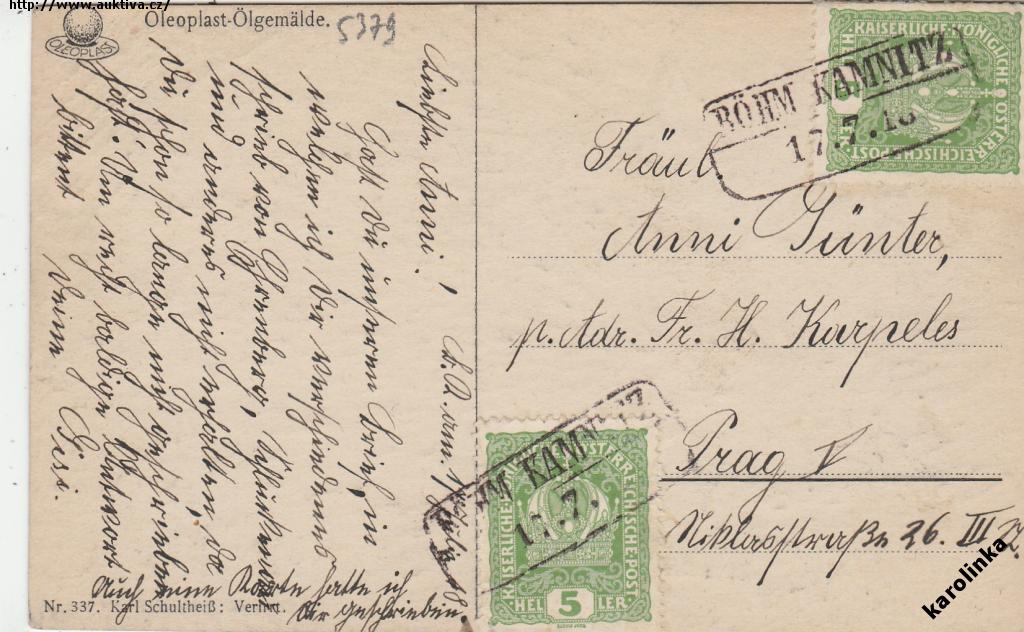 http://www.auktiva.cz/
Oleoplast-Ölgemälde.
5379
OLEOPLAST
B. K. am 17. July 18.
Liebste Anni!
Hast du unseren Brief, in
welchem ich Dir verschiedenes
schrieb von
und anderes nicht erhalten, da
Du schon so lange nicht geschrieben
hast. Um recht baldige Antwort
bittet Deine Gisi.
Auch eine Karte hatte ich
Dir geschrieben.
Nr. 337. Karl Schultheiß:
KAISERLICHE KÖNIGLICHE ÖSTERREICHISCHE POST
BÖHM KAMNITZ
17.7.18
Fräul
Anni Günter,
p. Adr. Fr. H. Karpeles
Prag V
Niklasstraße 26. III
KAISERLICHE KÖNIGLICHE ÖSTERREICHISCHE POST
BÖHM KAMNITZ
17.7.
HELLER 5
karolinka